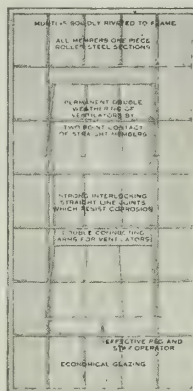 MUNTINS SOLIDLY RIVETED TO FRAME
ALL MEMBERS ONE PIECE
ROLLED STEEL SECTIONS
PERMANENT DOUBLE
WEATHERING OF
VENTILATORS BY
TWO POINT CONTACT
OF STRAIGHT MEMBERS
STRONG INTERLOCKING
STRAIGHT LINE JOINTS
WHICH RESIST CORROSION
DOUBLE CONNECTING
ARMS FOR VENTILATORS
EFFECTIVE PEG AND
STAY OPERATOR
ECONOMICAL GLAZING